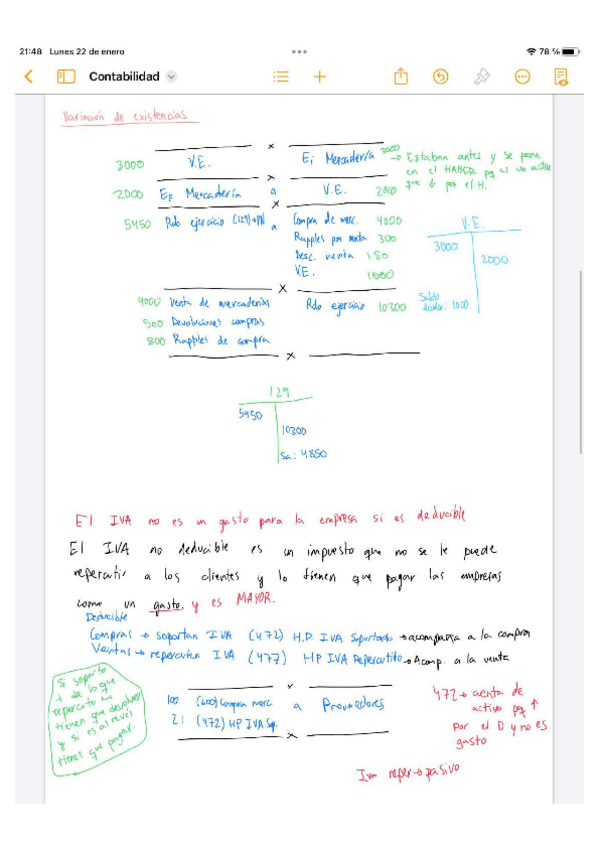 21:48 Lunes 22 de enero
78 %
Contabilidad
Variación de existencias
3000 V.E. Ei Mercadería 3000 → Estaban antes y se pone
en el HABER pq es un activo
que ↓ por el H.
2000 Ef Mercadería a V.E. 2000
5450 Rdo ejercicio (129) a Compra de merc. 4000
Rapples por venta 300
Desc. venta 150
V.E. 1000
V.E.
3000
2000
Saldo
deudor: 1000
9000 Venta de mercaderías Rdo ejercicio 10300
500 Devoluciones compras
800 Rapples de compra
129
5450
10300
Sa: 4850
El IVA no es un gasto para la empresa si es deducible
El IVA no deducible es un impuesto que no se le puede
repercutir a los clientes y lo tienen que pagar las empresas
como un gasto, y es MAYOR.
Deducible
Compras → soportan IVA (472) H.P. IVA Soportado → acompaña a la compra
Ventas → repercuten IVA (477) HP IVA Repercutito → Acomp. a la venta
Si soporto
+ de lo que
repercuto me
tienen que devolver
y si es al revés
tienes que pagar.
100 (600) Compra merc a Proveedores
21 (472) HP IVA Sop.
472 → cuenta de
activo pq ↑
por el D y no es
gasto
Iva reper → pasivo